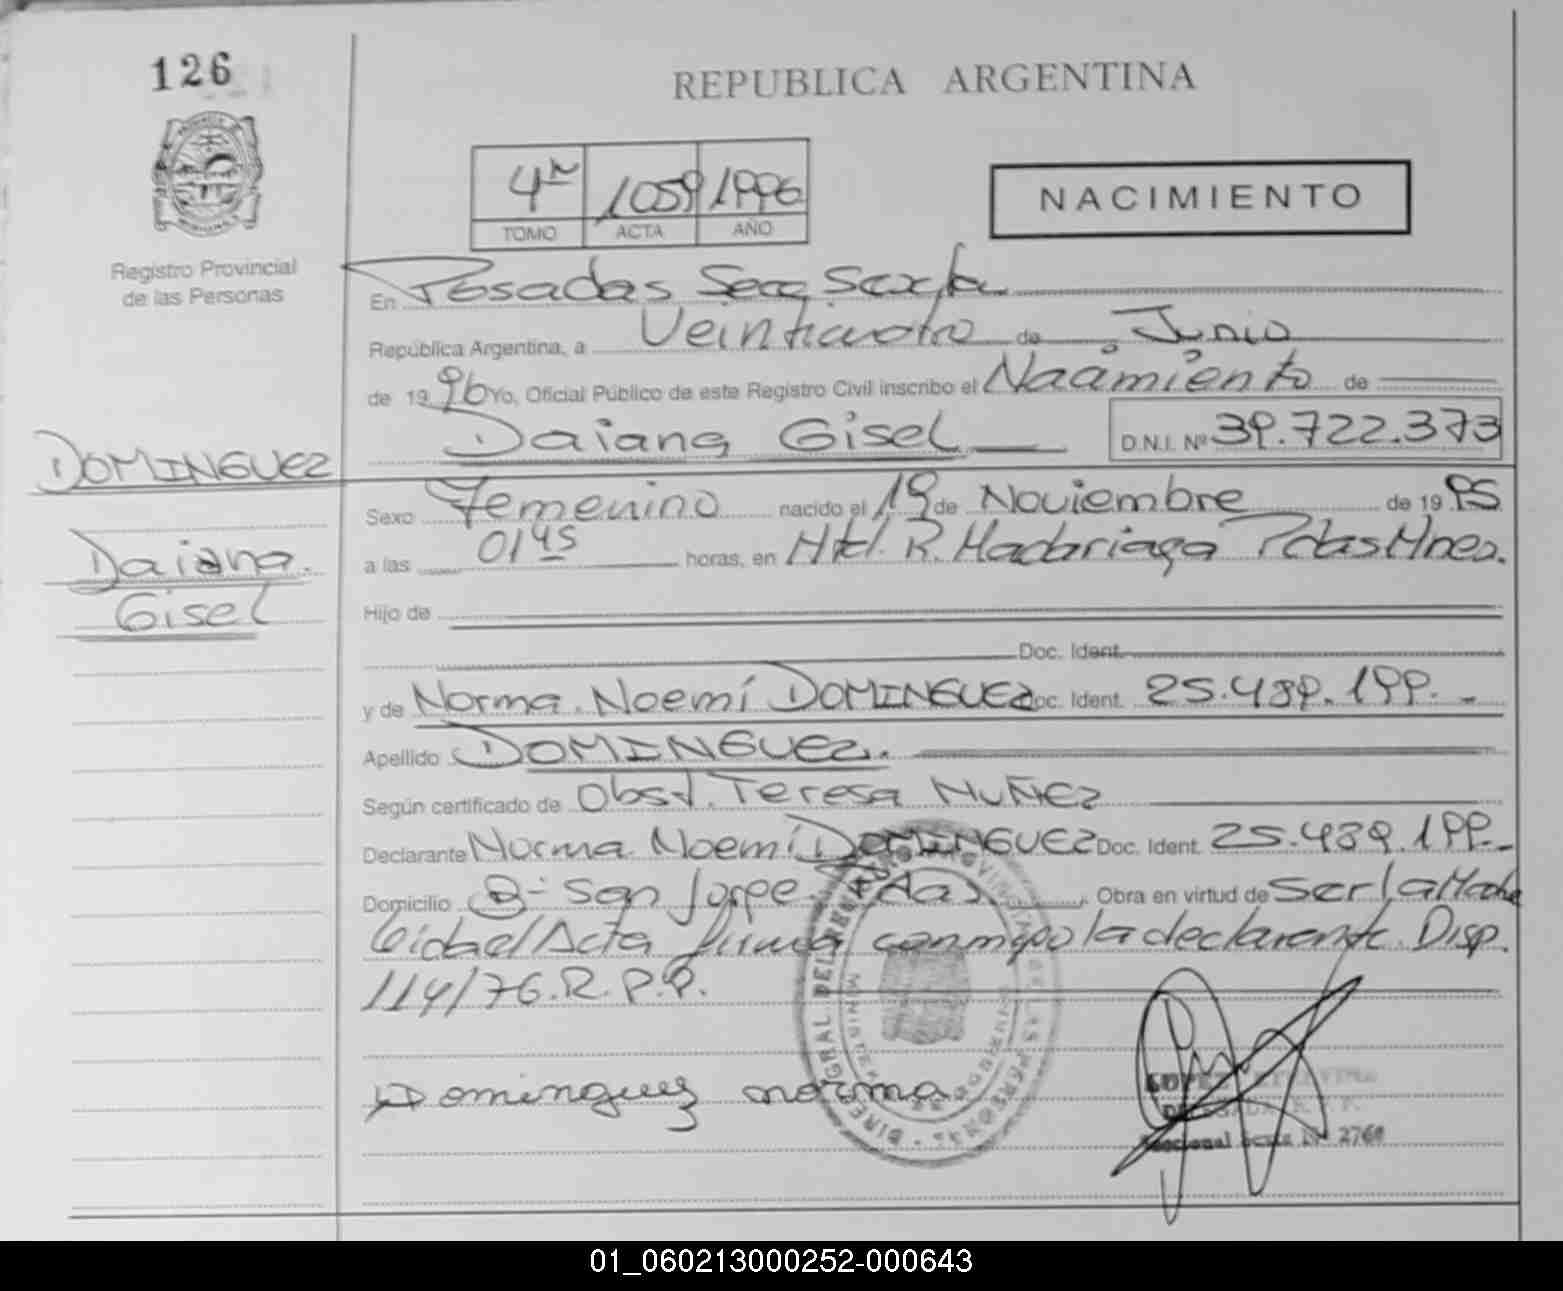 126
REPUBLICA ARGENTINA
4to 1059 1996
TOMO ACTA AÑO
NACIMIENTO
Registro Provincial
de las Personas
En Posadas Secc Sexta
República Argentina, a Veinticuatro de Junio
de 1996 Yo, Oficial Público de este Registro Civil inscribo el Nacimiento de
Daiana Gisel D.N.I. Nº 39.722.373
DOMINGUEZ
Daiana.
Gisel
Sexo Femenino nacido el 19 de Noviembre de 1995
a las 0145 horas, en Htal. R. Madariaga Pdas Mnes.
Hijo de
Doc. Ident.
y de Norma Noemí DOMINGUEZ Doc. Ident. 25.489.199.-
Apellido DOMINGUEZ.
Según certificado de Obst. Teresa NUÑEZ
Declarante Norma Noemí DOMINGUEZ Doc. Ident. 25.489.199.-
Domicilio Bº San Jorge Pdas. Obra en virtud de Ser la Madre
Leida el Acta firma conmigo la declarante. Disp.
114/76.R.P.P.
Dominguez norma
DIREC. GRAL DEL REGISTRO PROVINCIAL DE LAS PERSONAS
MISIONES
DELEGADA R.P.P.
Seccional Sexta Nº 2760
01_060213000252-000643